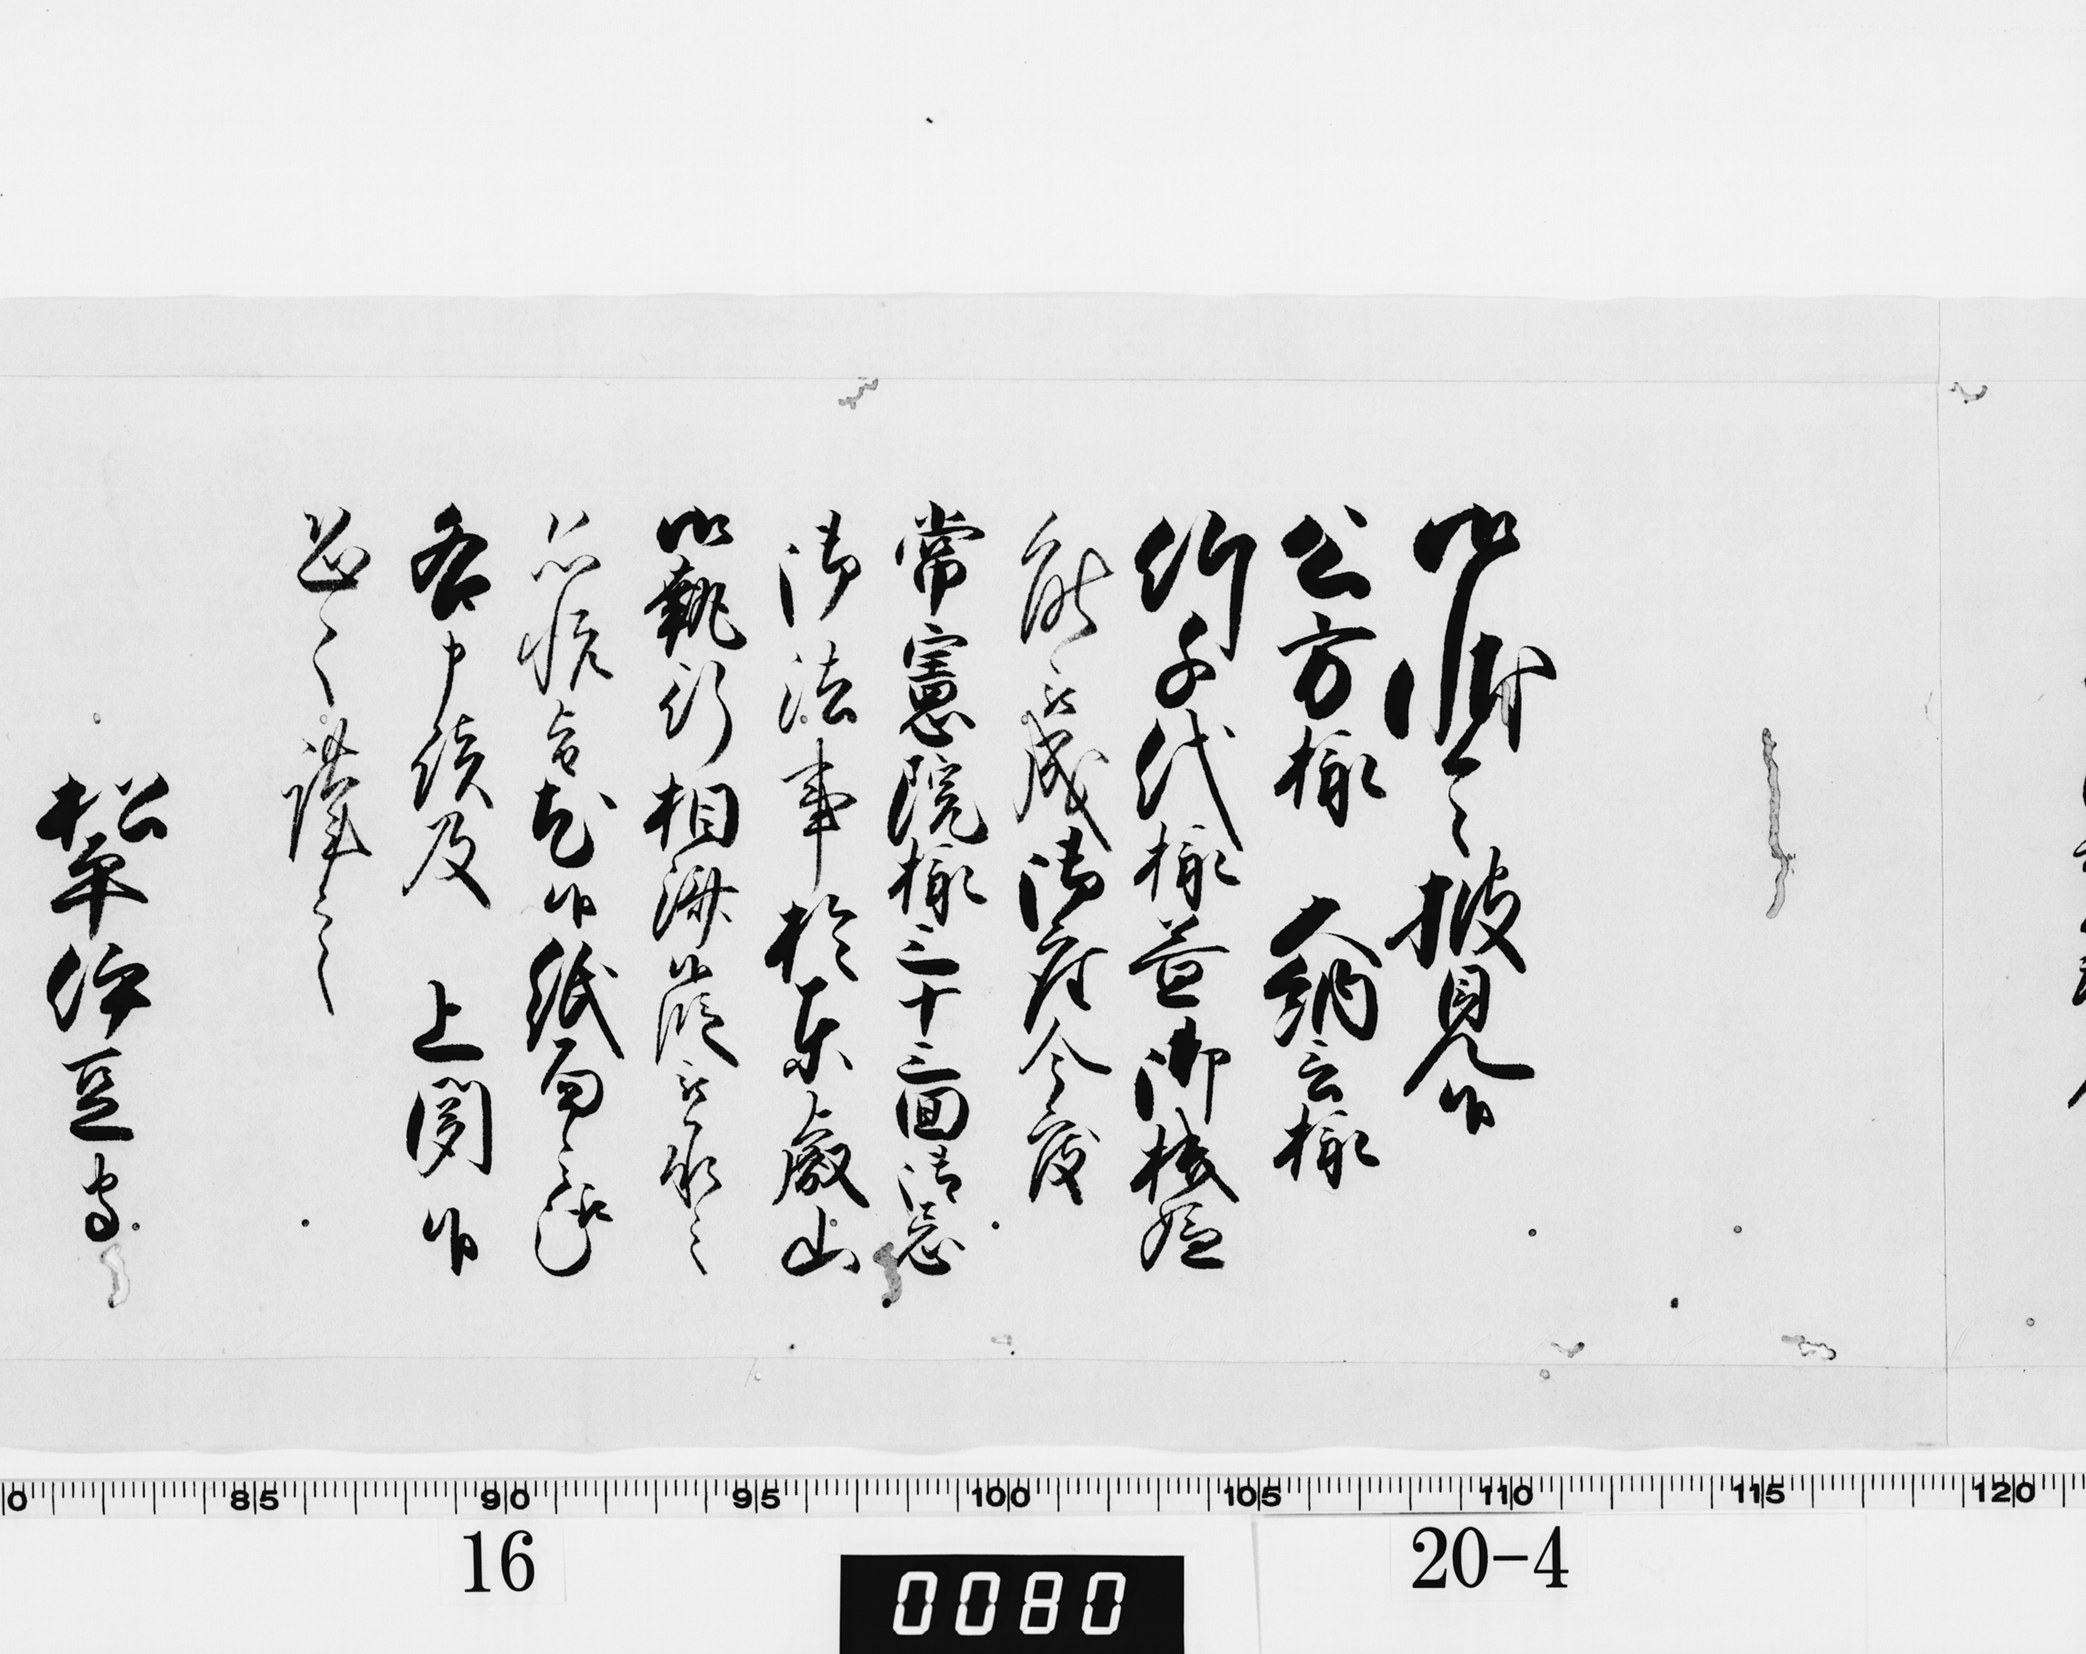 御状令披見候
公方様　大納言様
竹千代様益御機嫌
能被成御座今度
常憲院様三十三回御忌
御法事於東叡山
御執行相済候段被承之
恐悦旨尤候紙面之趣
各申談及　上聞候
恐々謹言
松平伊豆守
16
20-4
0080
85
90
95
100
105
110
115
120